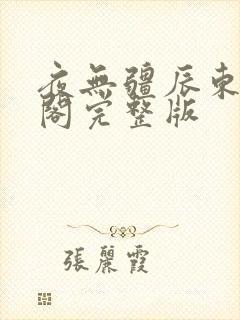 夜無疆辰東
閣完整版
張麗霞